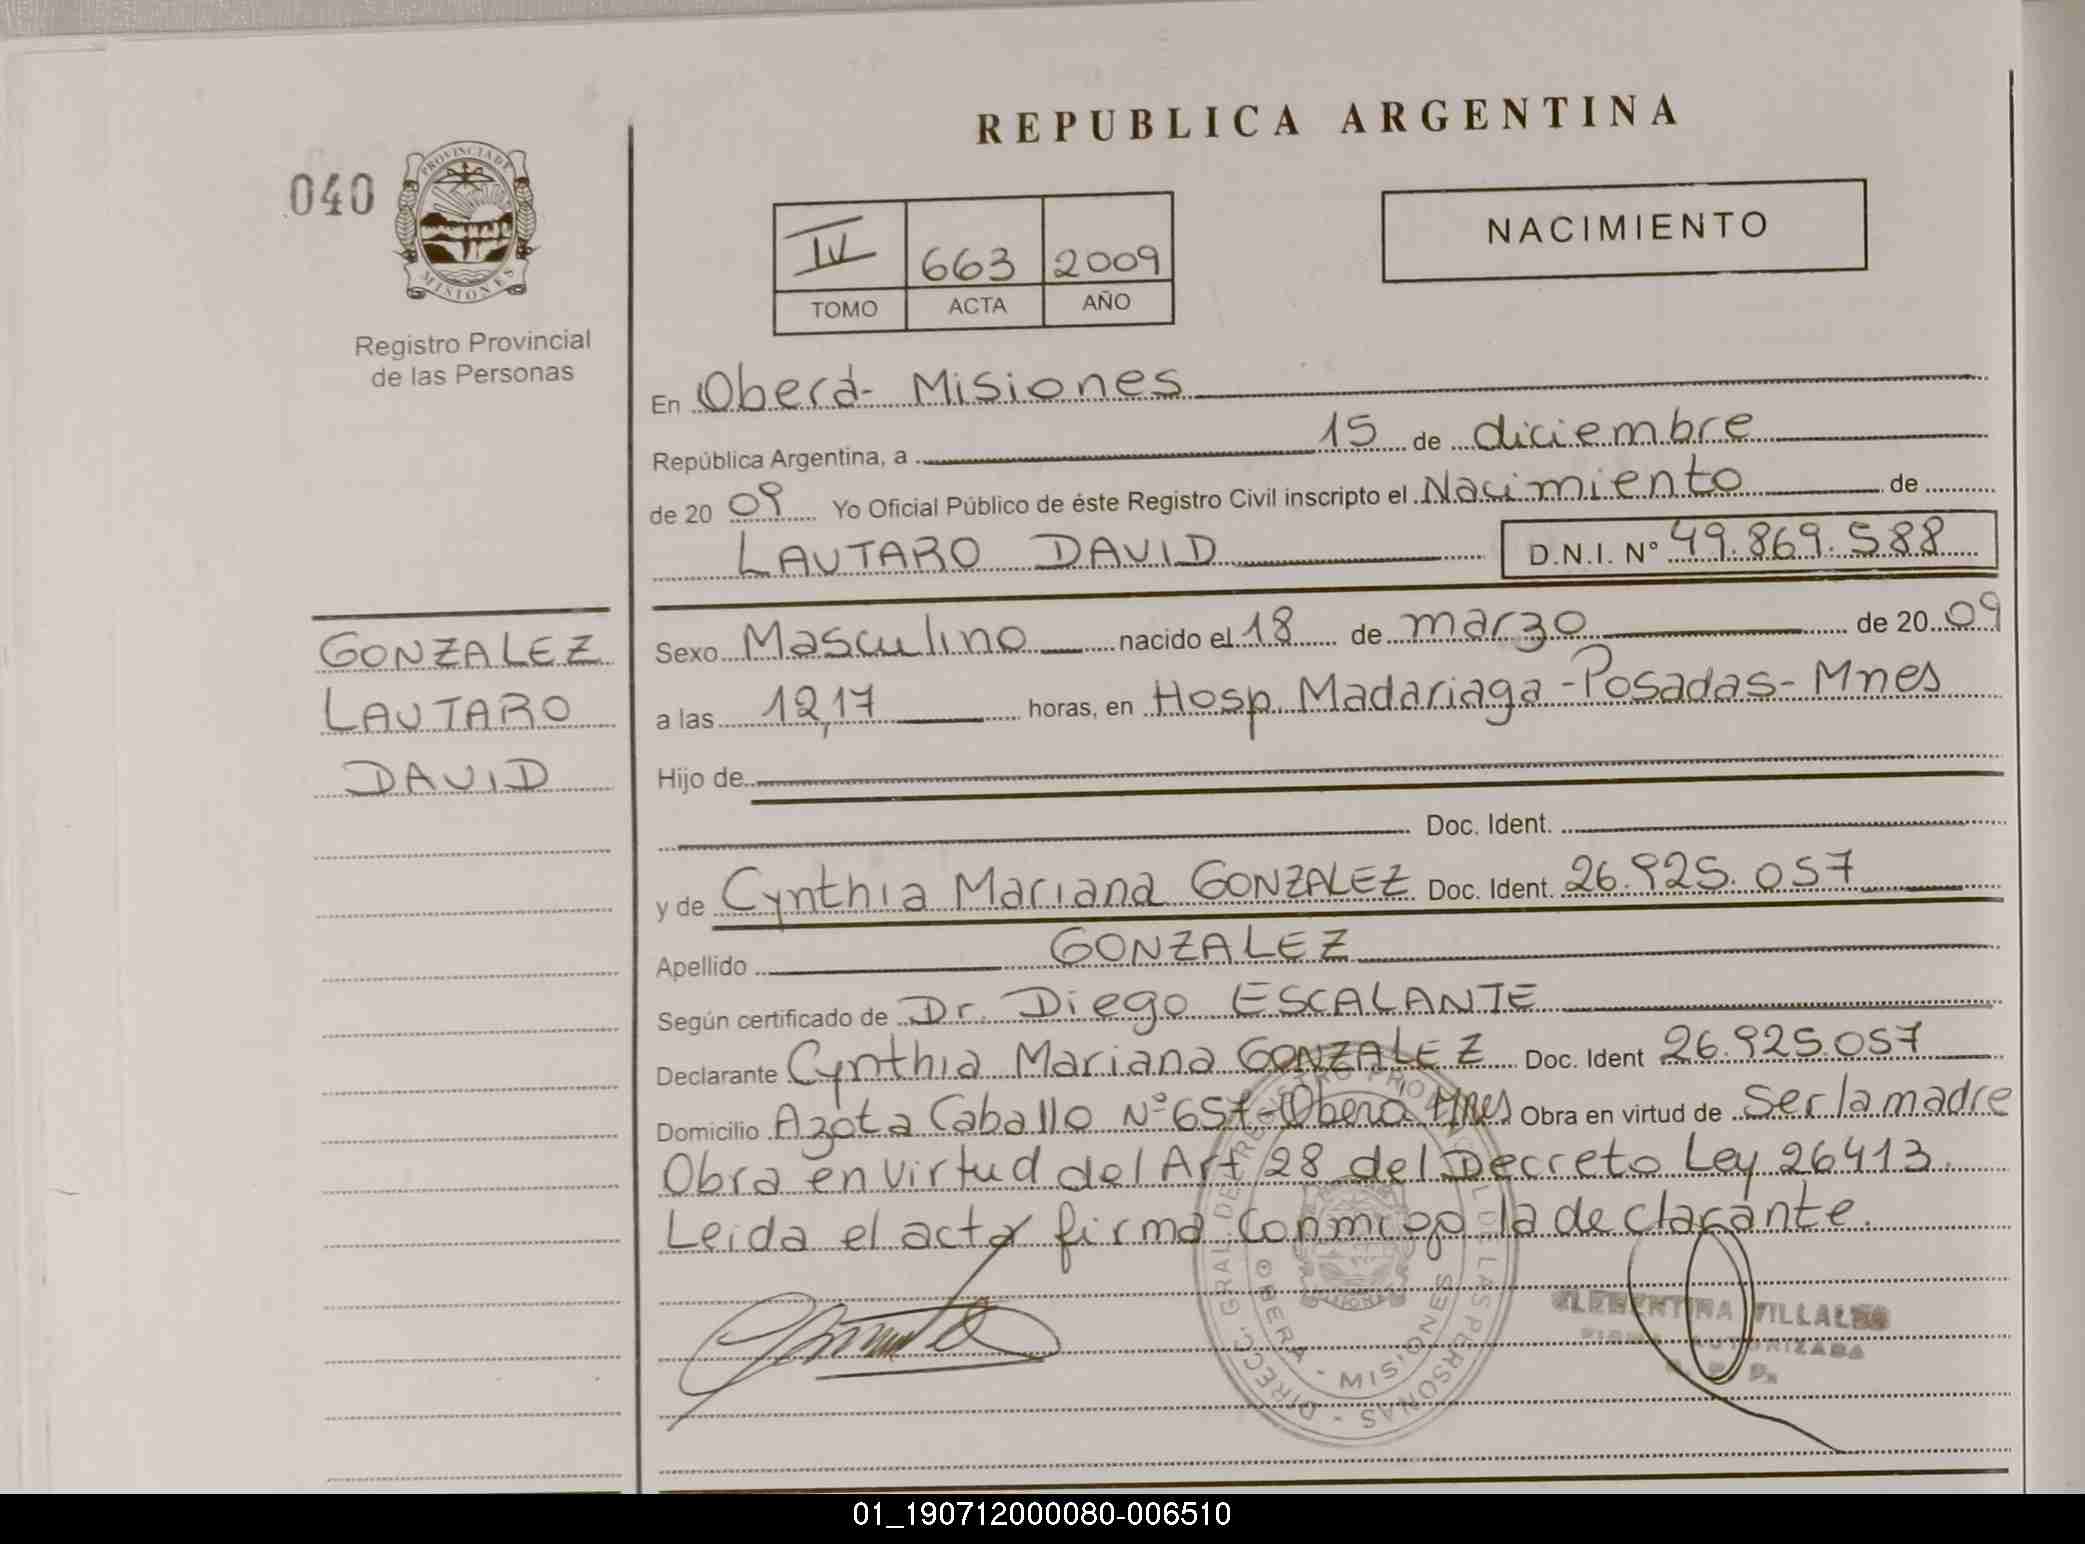 REPUBLICA ARGENTINA
040
PROVINCIA DE
MISIONES
Registro Provincial
de las Personas
NACIMIENTO
IV 663 2009
TOMO ACTA AÑO
En Oberá- Misiones
República Argentina, a 15 de diciembre
de 20 09 Yo Oficial Público de éste Registro Civil inscripto el Nacimiento de
LAUTARO DAVID D.N.I. N° 49.869.588
GONZALEZ
LAUTARO
DAVID
Sexo Masculino nacido el 18 de marzo de 20 09
a las 12,17 horas, en Hosp. Madariaga-Posadas-Mnes
Hijo de
Doc. Ident.
y de Cynthia Mariana GONZALEZ Doc. Ident. 26.925.057
Apellido GONZALEZ
Según certificado de Dr. Diego ESCALANTE
Declarante Cynthia Mariana GONZALEZ Doc. Ident 26.925.057
Domicilio Azota Caballo N° 657-Oberá Mnes Obra en virtud de Ser la madre
Obra en virtud del Art 28 del Decreto Ley 26413.
Leida el acta firma conmigo la declarante.
DIRECC. GRAL DE REGISTRO PROVINCIAL DE LAS PERSONAS -
OBERA - MISIONES
CLEMENTINA VILLALBA
FIRMA AUTORIZADA
01_190712000080-006510